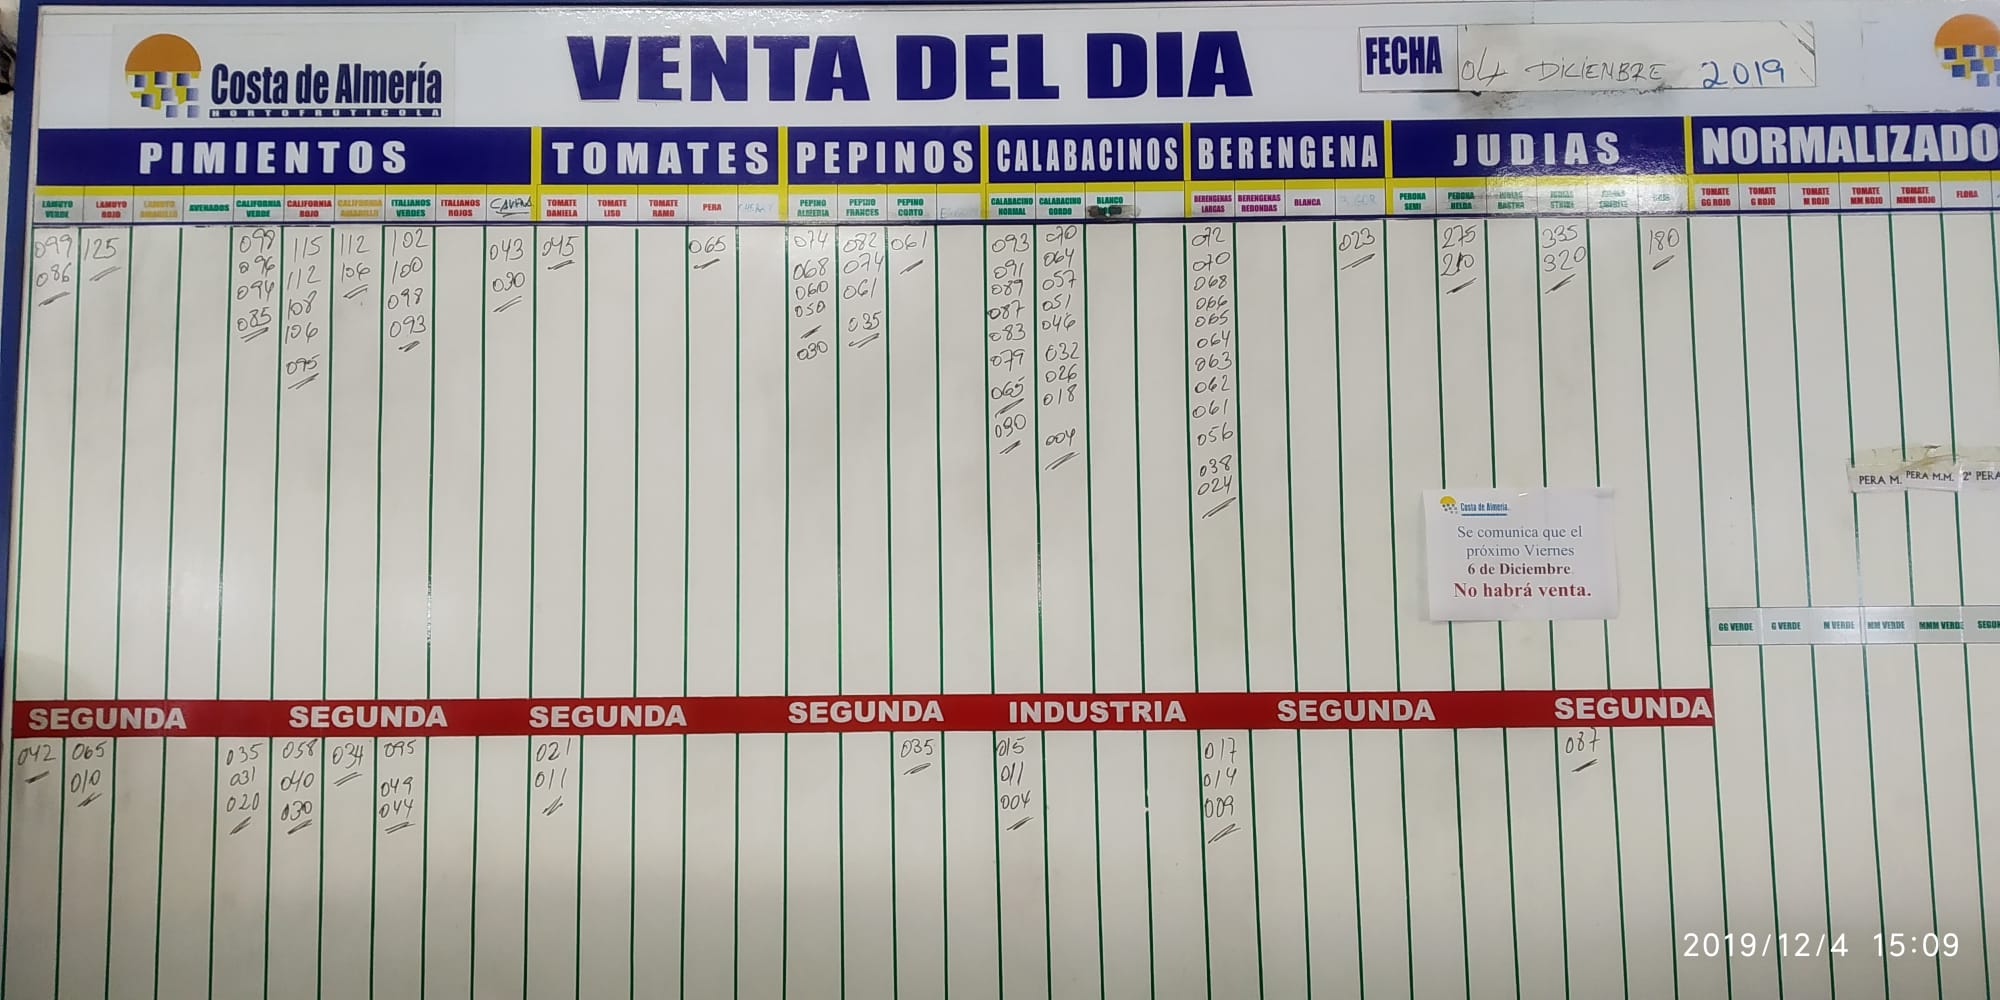 Costa de Almería
HORTOFRUTICOLA
VENTA DEL DIA
FECHA 04 DICIEMBRE 2019
PIMIENTOS TOMATES PEPINOS CALABACINOS BERENGENA JUDIAS NORMALIZADO
LAMUYO VERDE LAMUYO ROJO LAMUYO AMARILLO AVENADOS CALIFORNIA VERDE CALIFORNIA ROJO CALIFORNIA AMARILLO ITALIANOS VERDES ITALIANOS ROJOS TOMATE DANIELA TOMATE LISO TOMATE RAMO PERA PEPINO ALMERIA PEPINO FRANCES PEPINO CORTO CALABACINO NORMAL CALABACINO GORDO BLANCO BERENGENAS LARGAS BERENGENAS REDONDAS BLANCA PERONA SEMI PERONA HELDA TOMATE GG ROJO TOMATE G ROJO TOMATE M ROJO TOMATE MM ROJO TOMATE MMM ROJO FLORA
099 125 098 115 112 102 043 045 065 074 082 061 093 070 072 023 275 335 180
086 096 112 106 100 030 068 074 091 064 070 210 320
094 108 098 060 061 089 057 068
085 106 093 050 035 087 051 066
095 030 083 046 065
079 032 064
065 026 063
030 018 062
004 061
056
038
024
PERA M. PERA M.M. 2ª PERA
Costa de Almería
Se comunica que el
próximo Viernes
6 de Diciembre
No habrá venta.
GG VERDE G VERDE M VERDE MM VERDE MMM VERDE
SEGUNDA SEGUNDA SEGUNDA SEGUNDA INDUSTRIA SEGUNDA SEGUNDA
042 065 035 058 034 095 021 035 015 017 087
010 031 040 049 011 011 014
020 030 044 004 009
2019/12/4 15:09